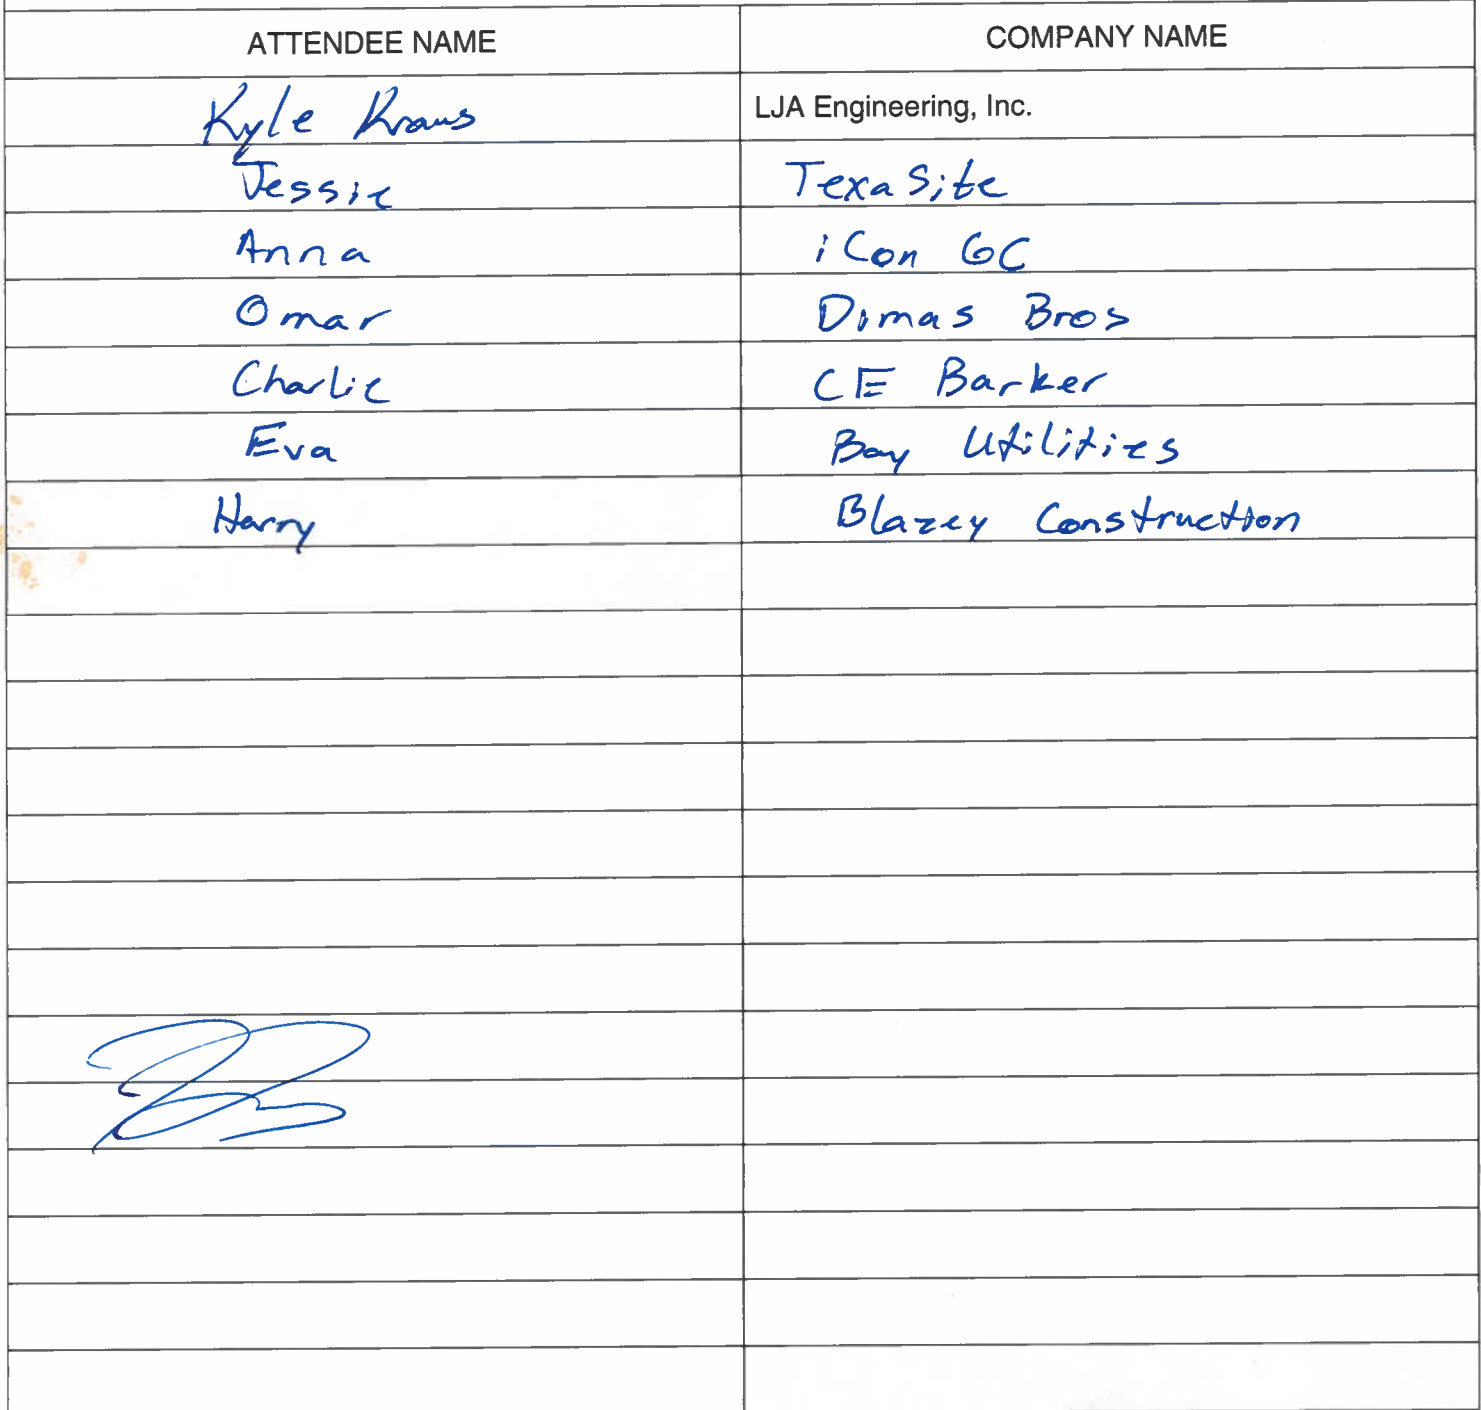 ATTENDEE NAME COMPANY NAME
Kyle Kraus LJA Engineering, Inc.
Jessie TexaSite
Anna iCon GC
Omar Dimas Bros
Charlie CE Barker
Eva Bay Utilities
Harry Blazey Construction